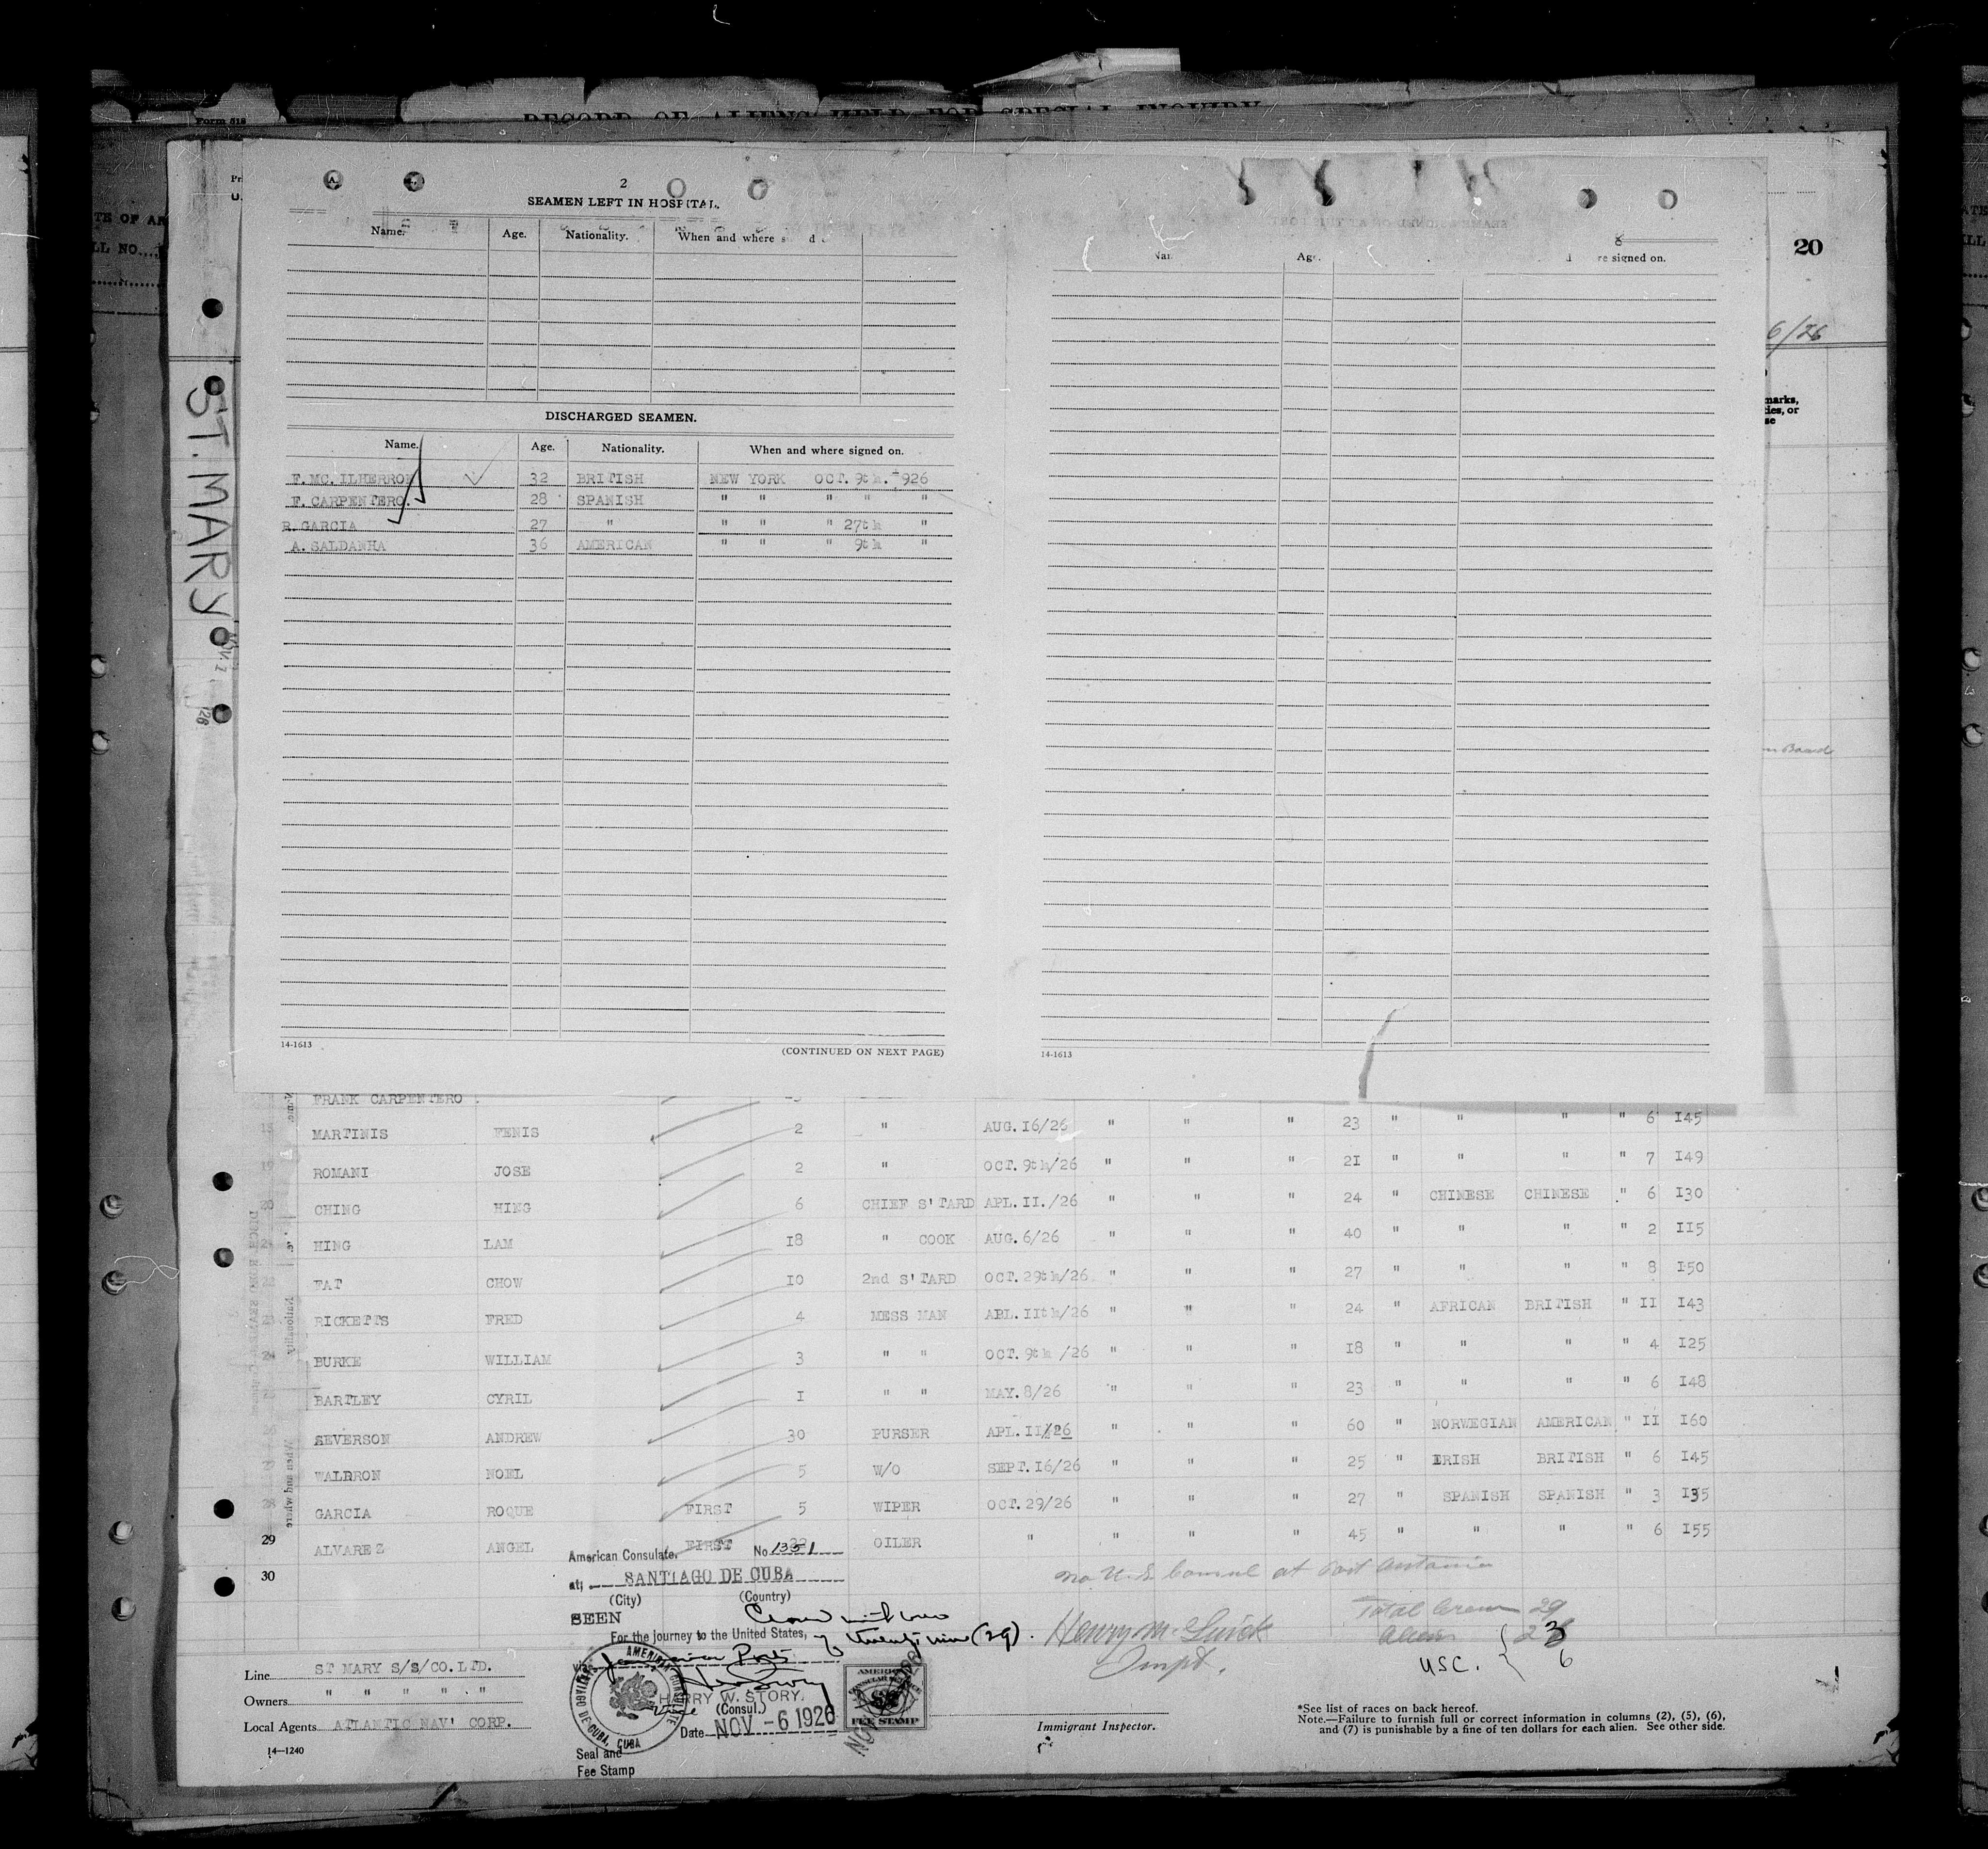 Form 518
RECORD OF ALIENS HELD FOR SPECIAL INQUIRY
2
SEAMEN LEFT IN HOSPITAL.
Name. Age. Nationality. When and where
20
Age. re signed on.
6/26
marks,
ies, or
se
ST. MARY
DISCHARGED SEAMEN.
Name. Age. Nationality. When and where signed on.
F. MC. ILHERRON 32 BRITISH NEW YORK OCT. 9th. 1926
F. CARPENTERO. 28 SPANISH " " " " "
R. GARCIA 27 " " " " 27th "
A. SALDANHA 36 AMERICAN " " " 9th "
14-1613 (CONTINUED ON NEXT PAGE) 14-1613
FRANK CARPENTERO .
MARTINIS FENIS 2 " AUG. I6/26 " " " 23 " " " " 6 I45
19 ROMANI JOSE 2 " OCT. 9th/26 " " " 2I " " " " 7 I49
20 CHING HING 6 CHIEF S'TARD APL. II./26 " " " 24 " CHINESE CHINESE " 6 I30
21 HING LAM I8 " COOK AUG. 6/26 " " " 40 " " " " 2 II5
22 FAT CHOW IO 2nd S'TARD OCT. 29th/26. " " " 27 " " " " 8 I50
23 RICKETTS FRED 4 MESS MAN APL. IIth/26 " " " 24 " AFRICAN BRITISH " II I43
24 BURKE WILLIAM 3 " " OCT. 9th /26 " " " I8 " " " " 4 I25
BARTLEY CYRIL I " " MAY. 8/26 " " " 23 " " " " 6 I48
SEVERSON ANDREW 30 PURSER APL. II/26 " " " 60 " NORWEGIAN AMERICAN " II I60
WALDRON NOEL 5 W/O SEPT. I6/26 " " " 25 " IRISH BRITISH " 6 I45
28 GARCIA ROQUE FIRST 5 WIPER OCT. 29/26 " " " 27 " SPANISH SPANISH " 3 I35
29 ALVAREZ ANGEL FIRST OILER " " " " 45 " " " " 6 I55
30
American Consulate, No. 1351
at; SANTIAGO DE CUBA
(City) (Country)
SEEN
For the journey to the United States, of twenty nine (29).
HARRY W. STORY.
Vice (Consul.)
Date NOV - 6 1926
Seal and
Fee Stamp
AMERICAN CONSULATE
SANTIAGO DE CUBA, CUBA
AMERICAN
CONSULAR SERVICE
FEE STAMP
no U.S. Consul at Port Antonio
Total Crew 29
Aliens 23
USC. 6
Immigrant Inspector.
Line ST MARY S/S/CO. LTD.
Owners " " " " . "
Local Agents ATLANTIC NAV' CORP.
14—1240
*See list of races on back hereof.
Note.—Failure to furnish full or correct information in columns (2), (5), (6),
and (7) is punishable by a fine of ten dollars for each alien. See other side.